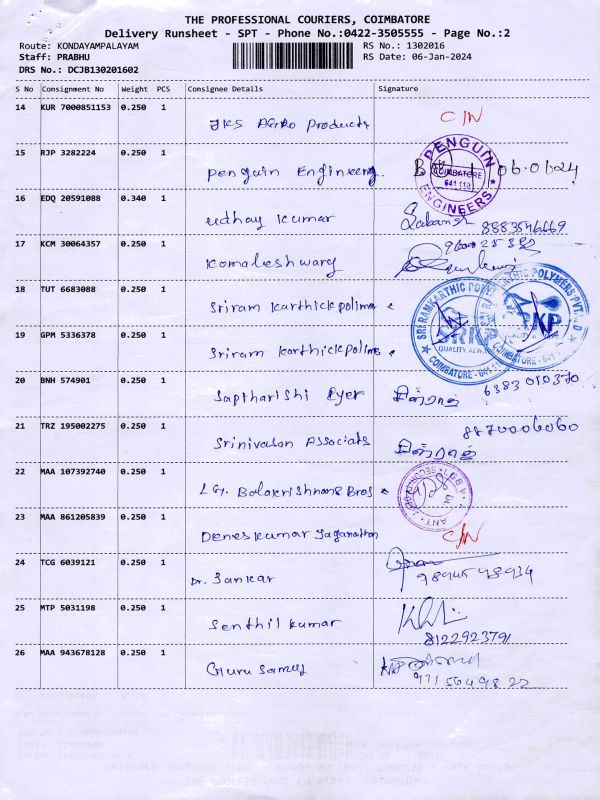 THE PROFESSIONAL COURIERS, COIMBATORE
Delivery Runsheet - SPT - Phone No.:0422-3505555 - Page No.:2
Route: KONDAYAMPALAYAM RS No.: 1302016
Staff: PRABHU RS Date: 06-Jan-2024
DRS No.: DCJB130201602
S No Consignment No Weight PCS Consignee Details Signature
14 KUR 7000851153 0.250 1
JKS Agro Products C/N
15 RJP 3282224 0.250 1
Penguin Engineering. 06.01.24
PENGUIN ENGINEERS COIMBATORE 641 110
16 EDQ 20591088 0.340 1
Udhay Kumar 8883546669
17 KCM 30064357 0.250 1
Komaleshwary
18 TUT 6683088 0.250 1
Sriram Karthick polima
19 GPM 5336378 0.250 1
Sriram Karthick polima
SRI RAMKARTHIC POLYMERS PVT. LTD SRKP QUALITY ALWAYS COIMBATORE - 641 110
20 BNH 574901 0.250 1
Saptharishi Iyer 6383010370
21 TRZ 195002275 0.250 1
Srinivasan Associats 8870006060
22 MAA 107392740 0.250 1
L.G. Balakrishnan & Bros
23 MAA 861205839 0.250 1
Deneskumar Jaganathan C/N
24 TCG 6039121 0.250 1
Dr. Sankar
25 MTP 5031198 0.250 1
Senthil kumar
8122923791
26 MAA 943678128 0.250 1
Guru Samy